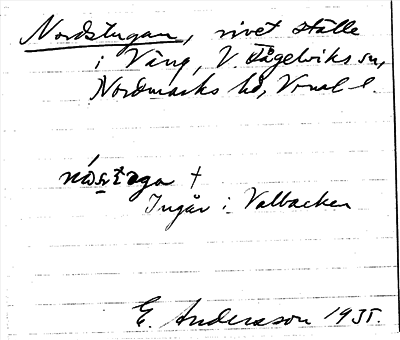 Nordstugan, rivet ställe
i Vång, V. Fågelviks sn,
Nordmarks hd, Vrml l.
nósṭoga †
Ingår i Valbacken
E. Andersson 1935.